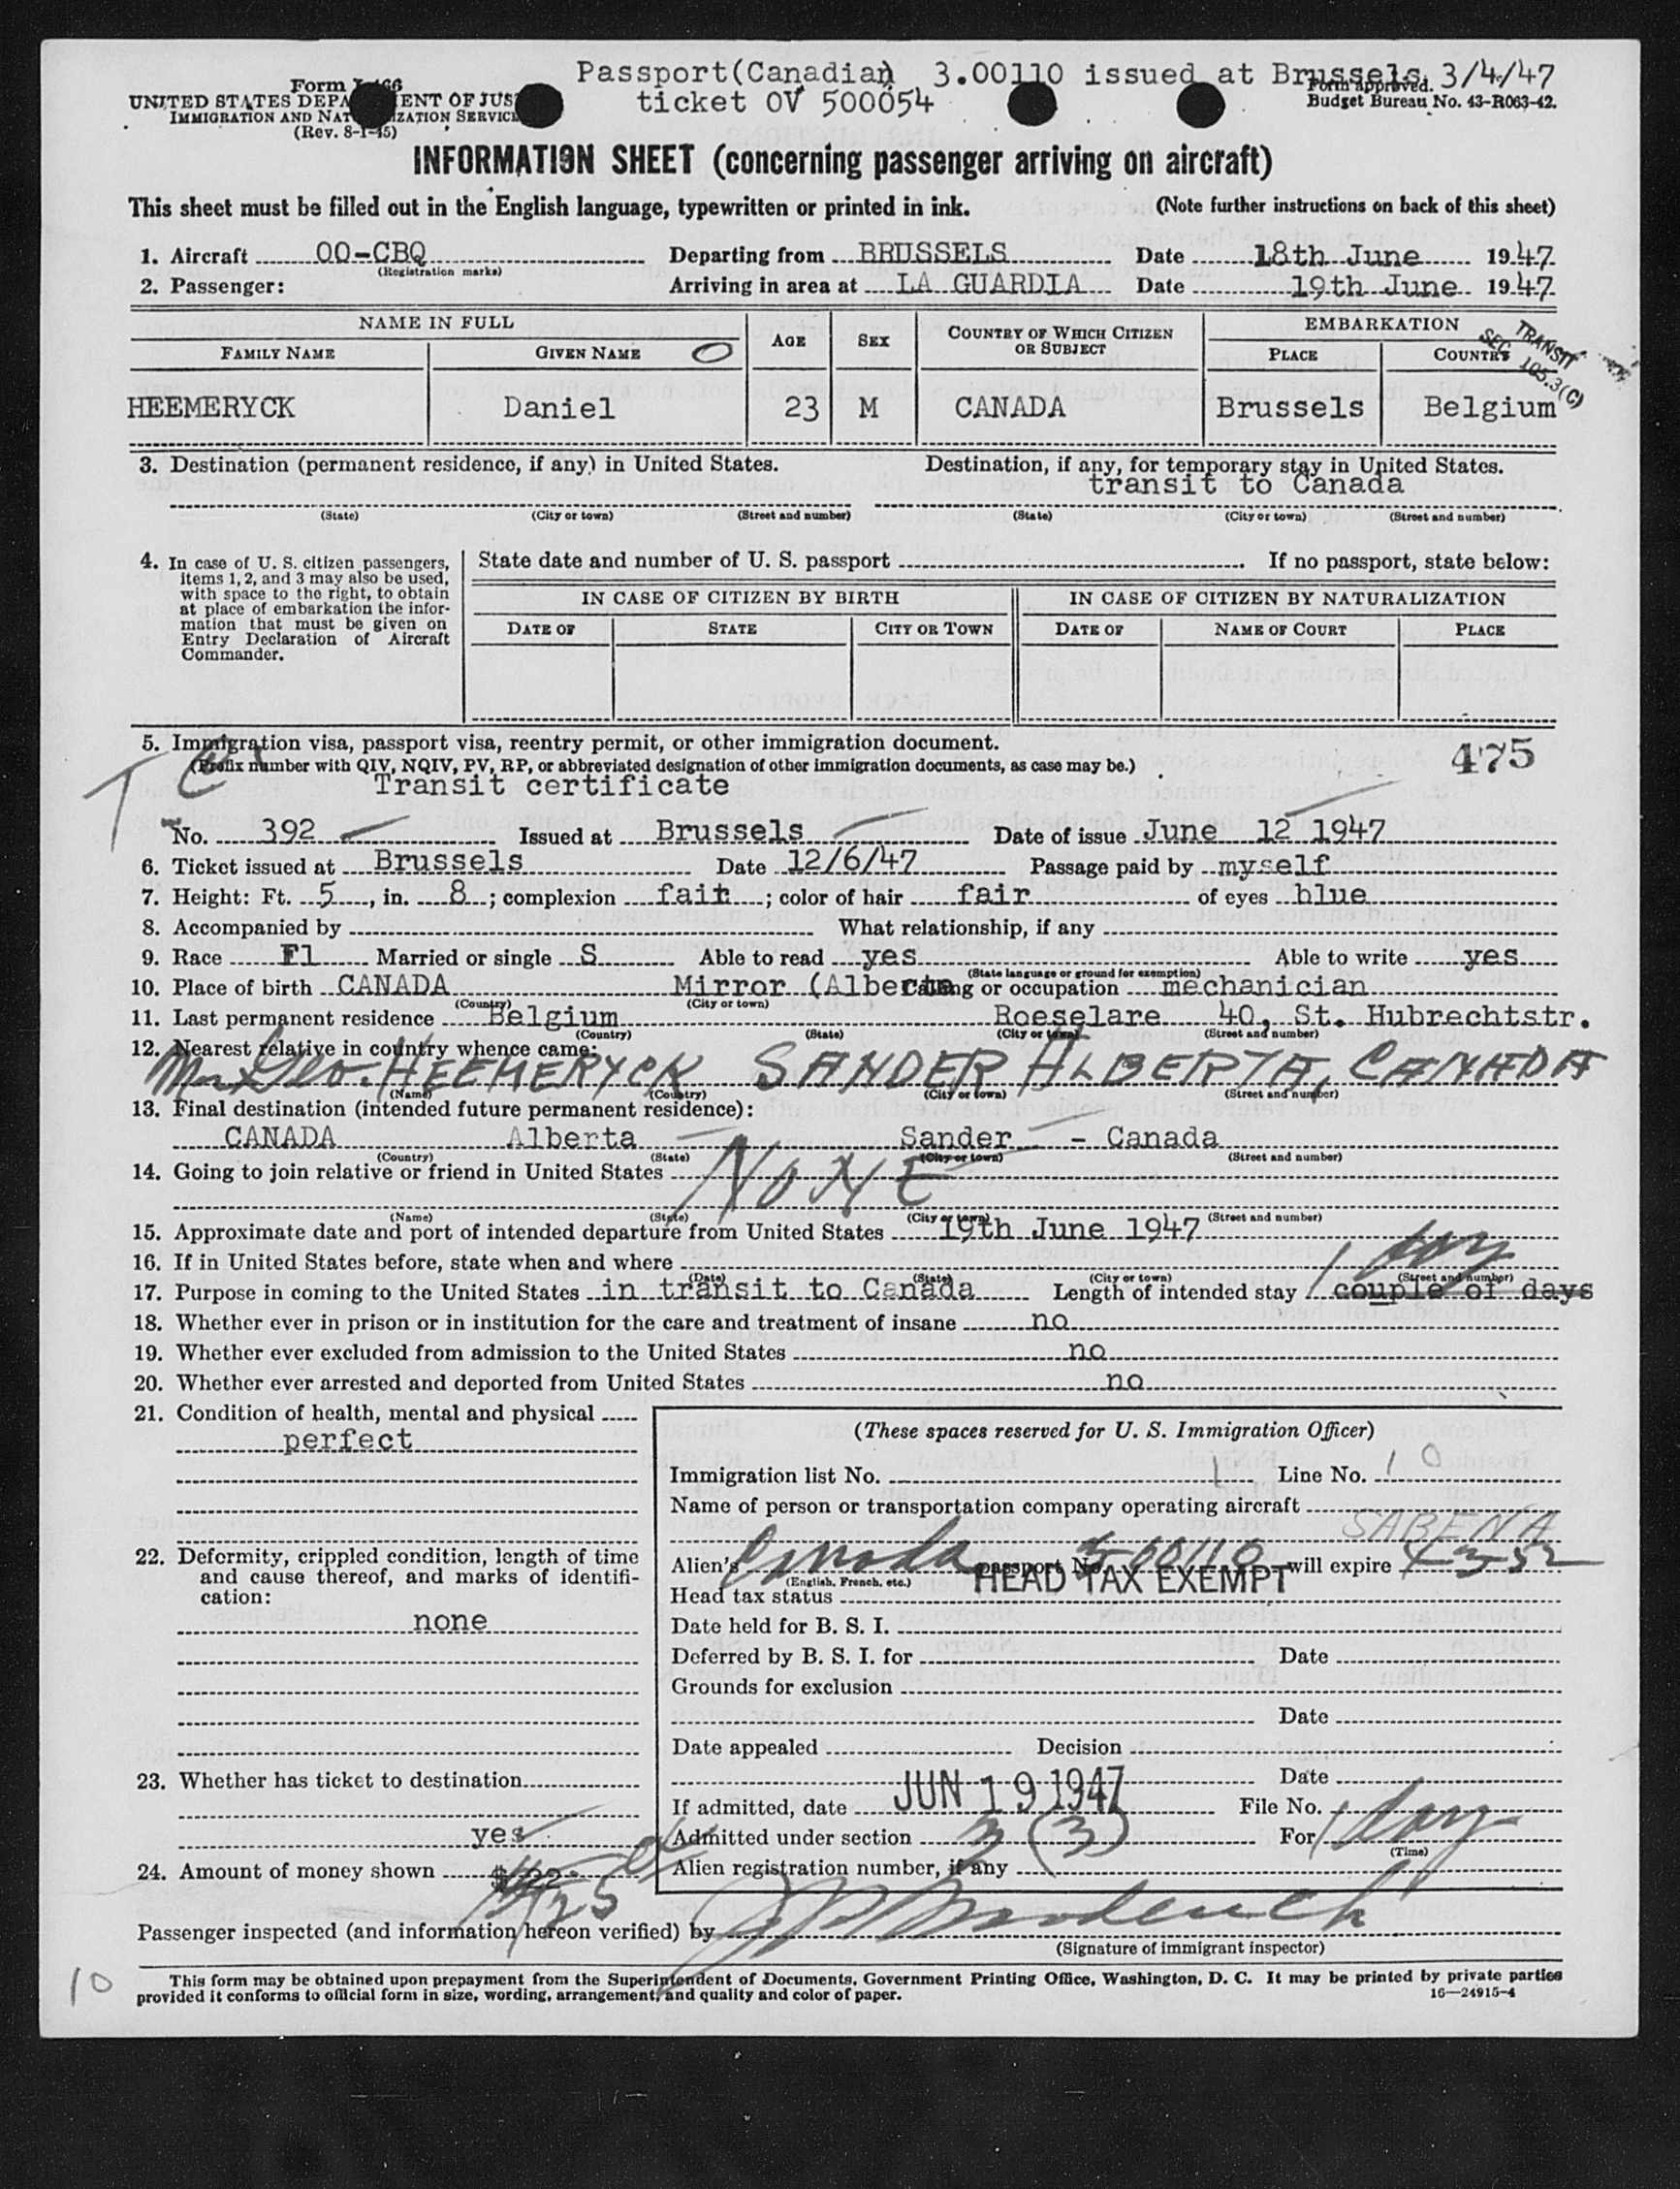 Passport(Canadian) 3.00110 issued at Brussels. 3/4/47
ticket OV 500054
Form
UNITED STATES DEPA ENT OF JUS
IMMIGRATION AND NAT IZATION SERVICE
(Rev. 8-1-45)
Form approved.
Budget Bureau No. 43-R063-42.
INFORMATION SHEET (concerning passenger arriving on aircraft)
This sheet must be filled out in the English language, typewritten or printed in ink. (Note further instructions on back of this sheet)
1. Aircraft OO-CBQ Departing from BRUSSELS Date 18th June 1947
(Registration marks)
2. Passenger: Arriving in area at LA GUARDIA Date 19th June 1947
NAME IN FULL AGE SEX COUNTRY OF WHICH CITIZEN OR SUBJECT EMBARKATION
FAMILY NAME GIVEN NAME PLACE COUNTRY
TRANSIT
SEC 105.3(C)
HEEMERYCK Daniel 23 M CANADA Brussels Belgium
3. Destination (permanent residence, if any) in United States. Destination, if any, for temporary stay in United States.
transit to Canada
(State) (City or town) (Street and number) (State) (City or town) (Street and number)
4. In case of U. S. citizen passengers,
items 1, 2, and 3 may also be used,
with space to the right, to obtain
at place of embarkation the infor-
mation that must be given on
Entry Declaration of Aircraft
Commander.
State date and number of U. S. passport If no passport, state below:
IN CASE OF CITIZEN BY BIRTH IN CASE OF CITIZEN BY NATURALIZATION
DATE OF STATE CITY OR TOWN DATE OF NAME OF COURT PLACE
5. Immigration visa, passport visa, reentry permit, or other immigration document.
(Prefix number with QIV, NQIV, PV, RP, or abbreviated designation of other immigration documents, as case may be.)
475
Transit certificate
No. 392 Issued at Brussels Date of issue June 12 1947
6. Ticket issued at Brussels Date 12/6/47 Passage paid by myself
7. Height: Ft. 5, in. 8; complexion fair; color of hair fair of eyes blue
8. Accompanied by What relationship, if any
9. Race Fl Married or single S Able to read yes Able to write yes
(State language or ground for exemption)
10. Place of birth CANADA Mirror (Alberta Calling or occupation mechanician
(Country) (City or town)
11. Last permanent residence Belgium Roeselare 40, St. Hubrechtstr.
(Country) (State) (City or town) (Street and number)
12. Nearest relative in country whence came:
HEEMERYCK SANDER ALBERTA, CANADA
(Name) (Country) (City or town) (Street and number)
13. Final destination (intended future permanent residence):
CANADA Alberta Sander - Canada
(Country) (State) (City or town) (Street and number)
14. Going to join relative or friend in United States NONE
(Name) (State) (City or town) (Street and number)
15. Approximate date and port of intended departure from United States 19th June 1947
16. If in United States before, state when and where
(Date) (State) (City or town) (Street and number)
1 day
17. Purpose in coming to the United States in transit to Canada Length of intended stay couple of days
18. Whether ever in prison or in institution for the care and treatment of insane no
19. Whether ever excluded from admission to the United States no
20. Whether ever arrested and deported from United States no
21. Condition of health, mental and physical
perfect
22. Deformity, crippled condition, length of time
and cause thereof, and marks of identifi-
cation:
none
23. Whether has ticket to destination
yes
24. Amount of money shown
(These spaces reserved for U. S. Immigration Officer)
Immigration list No. 1 Line No. 10
Name of person or transportation company operating aircraft
SABENA
Alien's Canada passport No. 300110 will expire 4-3-52
(English, French, etc.)
HEAD TAX EXEMPT
Head tax status
Date held for B. S. I.
Deferred by B. S. I. for Date
Grounds for exclusion
Date
Date appealed Decision
Date
If admitted, date JUN 19 1947 File No.
Admitted under section 3 (3) For 1 day
(Time)
Alien registration number, if any
Passenger inspected (and information hereon verified) by
(Signature of immigrant inspector)
10
This form may be obtained upon prepayment from the Superintendent of Documents, Government Printing Office, Washington, D. C. It may be printed by private parties
provided it conforms to official form in size, wording, arrangement, and quality and color of paper.
16—24915-4